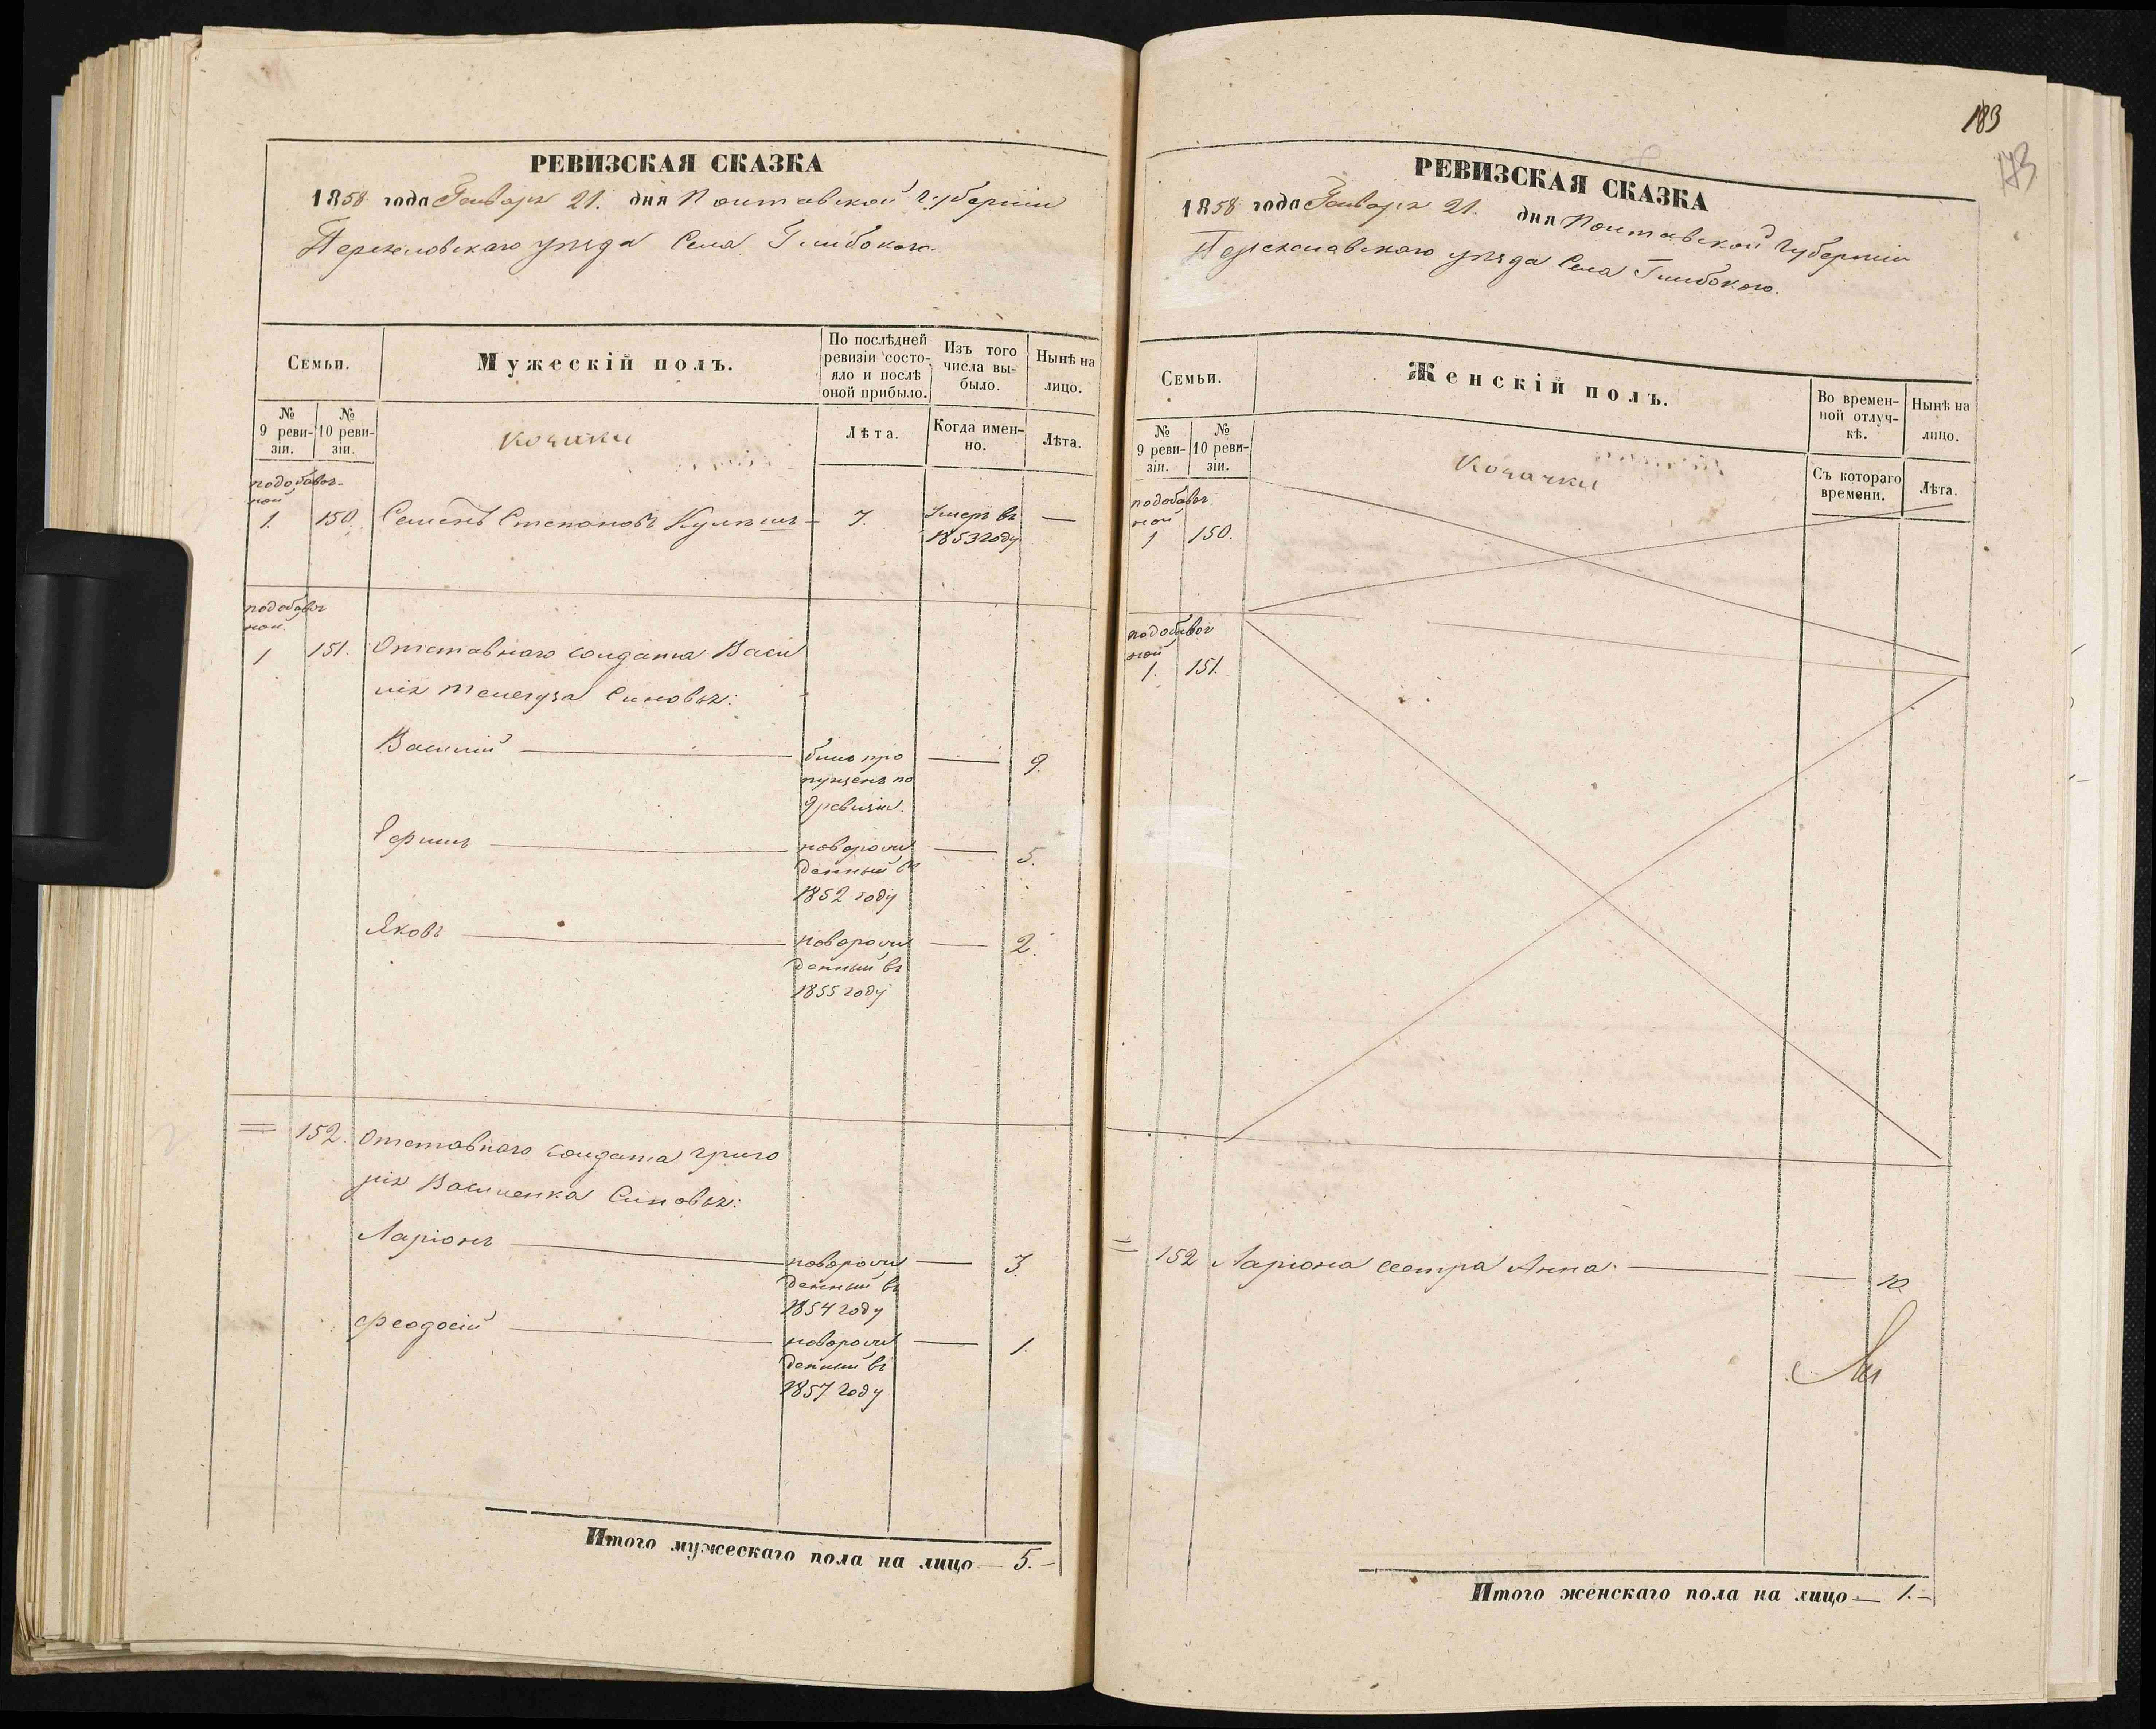 РЕВИЗСКАЯ СКАЗКА
1858 года Генваря 21. дня Полтавской Губерніи
Переяславскаго уѣзда Села Глибокаго.
Семьи.
Мужескій полъ.
По послѣдней ревизіи состо-
яло и послѣ
оной прибыло.
Изъ того
числа вы-
было.
Нынѣ на
лицо.
№
9 реви-
зіи.
№
10 реви-
зіи.
Козаки
Лѣта.
Когда имен-
но.
Лѣта.
подобавоч-
ной
1. 150. Семенъ Степановъ 7. Умеръ въ —
1853 году
подобавоч
ной.
1 151. Отставнаго солдата Васи
лія Телегуза Сыновья:
Василій — былъ про — 9.
пущенъ по
9 ревизіи.
Ефимъ — новорож — 5.
денный въ
1852 году
Яковъ — новорож — 2.
денный въ
1855 году
= 152. Отставнаго солдата Григо
рія Василенка Сыновья:
Ларіонъ — новорож — 3.
денный въ
1854 году
Феодосій — новорож — 1.
денный въ
1857 году
Итого мужескаго пола на лицо — 5. —
183
173
РЕВИЗСКАЯ СКАЗКА
1858 года Генваря 21. дня Полтавской Губерніи
Переяславскаго уѣзда Села Глибокого.
Семьи.
Женскій полъ.
Во времен-
ной отлуч-
кѣ.
Нынѣ на
лицо.
№
9 реви-
зіи.
№
10 реви-
зіи.
Козачки
Съ котораго
времени.
Лѣта.
подобавоч
ной
1 150.
подобавоч
ной
1. 151.
= 152 Ларіона сестра Анна — — 10.
Итого женскаго пола на лицо — 1. —